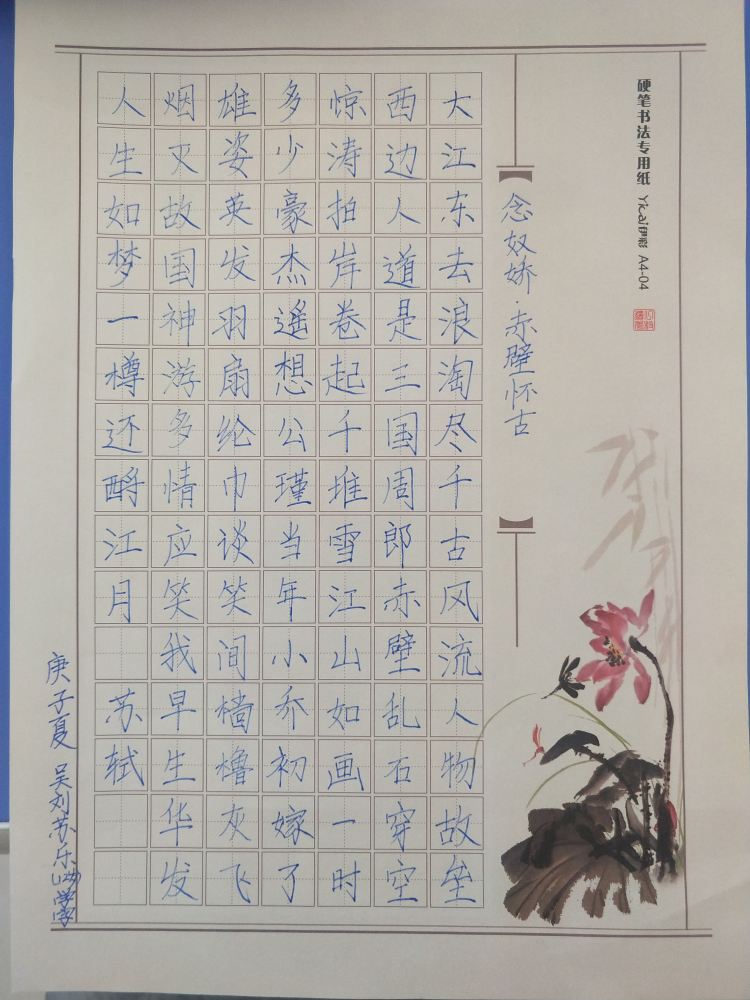 硬笔书法专用纸 Yicai伊彩 A4-04
念奴娇·赤壁怀古
大江东去浪淘尽千古风流人物故垒
西边人道是三国周郎赤壁乱石穿空
惊涛拍岸卷起千堆雪江山如画一时
多少豪杰遥想公瑾当年小乔初嫁了
雄姿英发羽扇纶巾谈笑间樯橹灰飞
烟灭故国神游多情应笑我早生华发
人生如梦一樽还酹江月 苏轼
庚子夏 吴刘苏乐